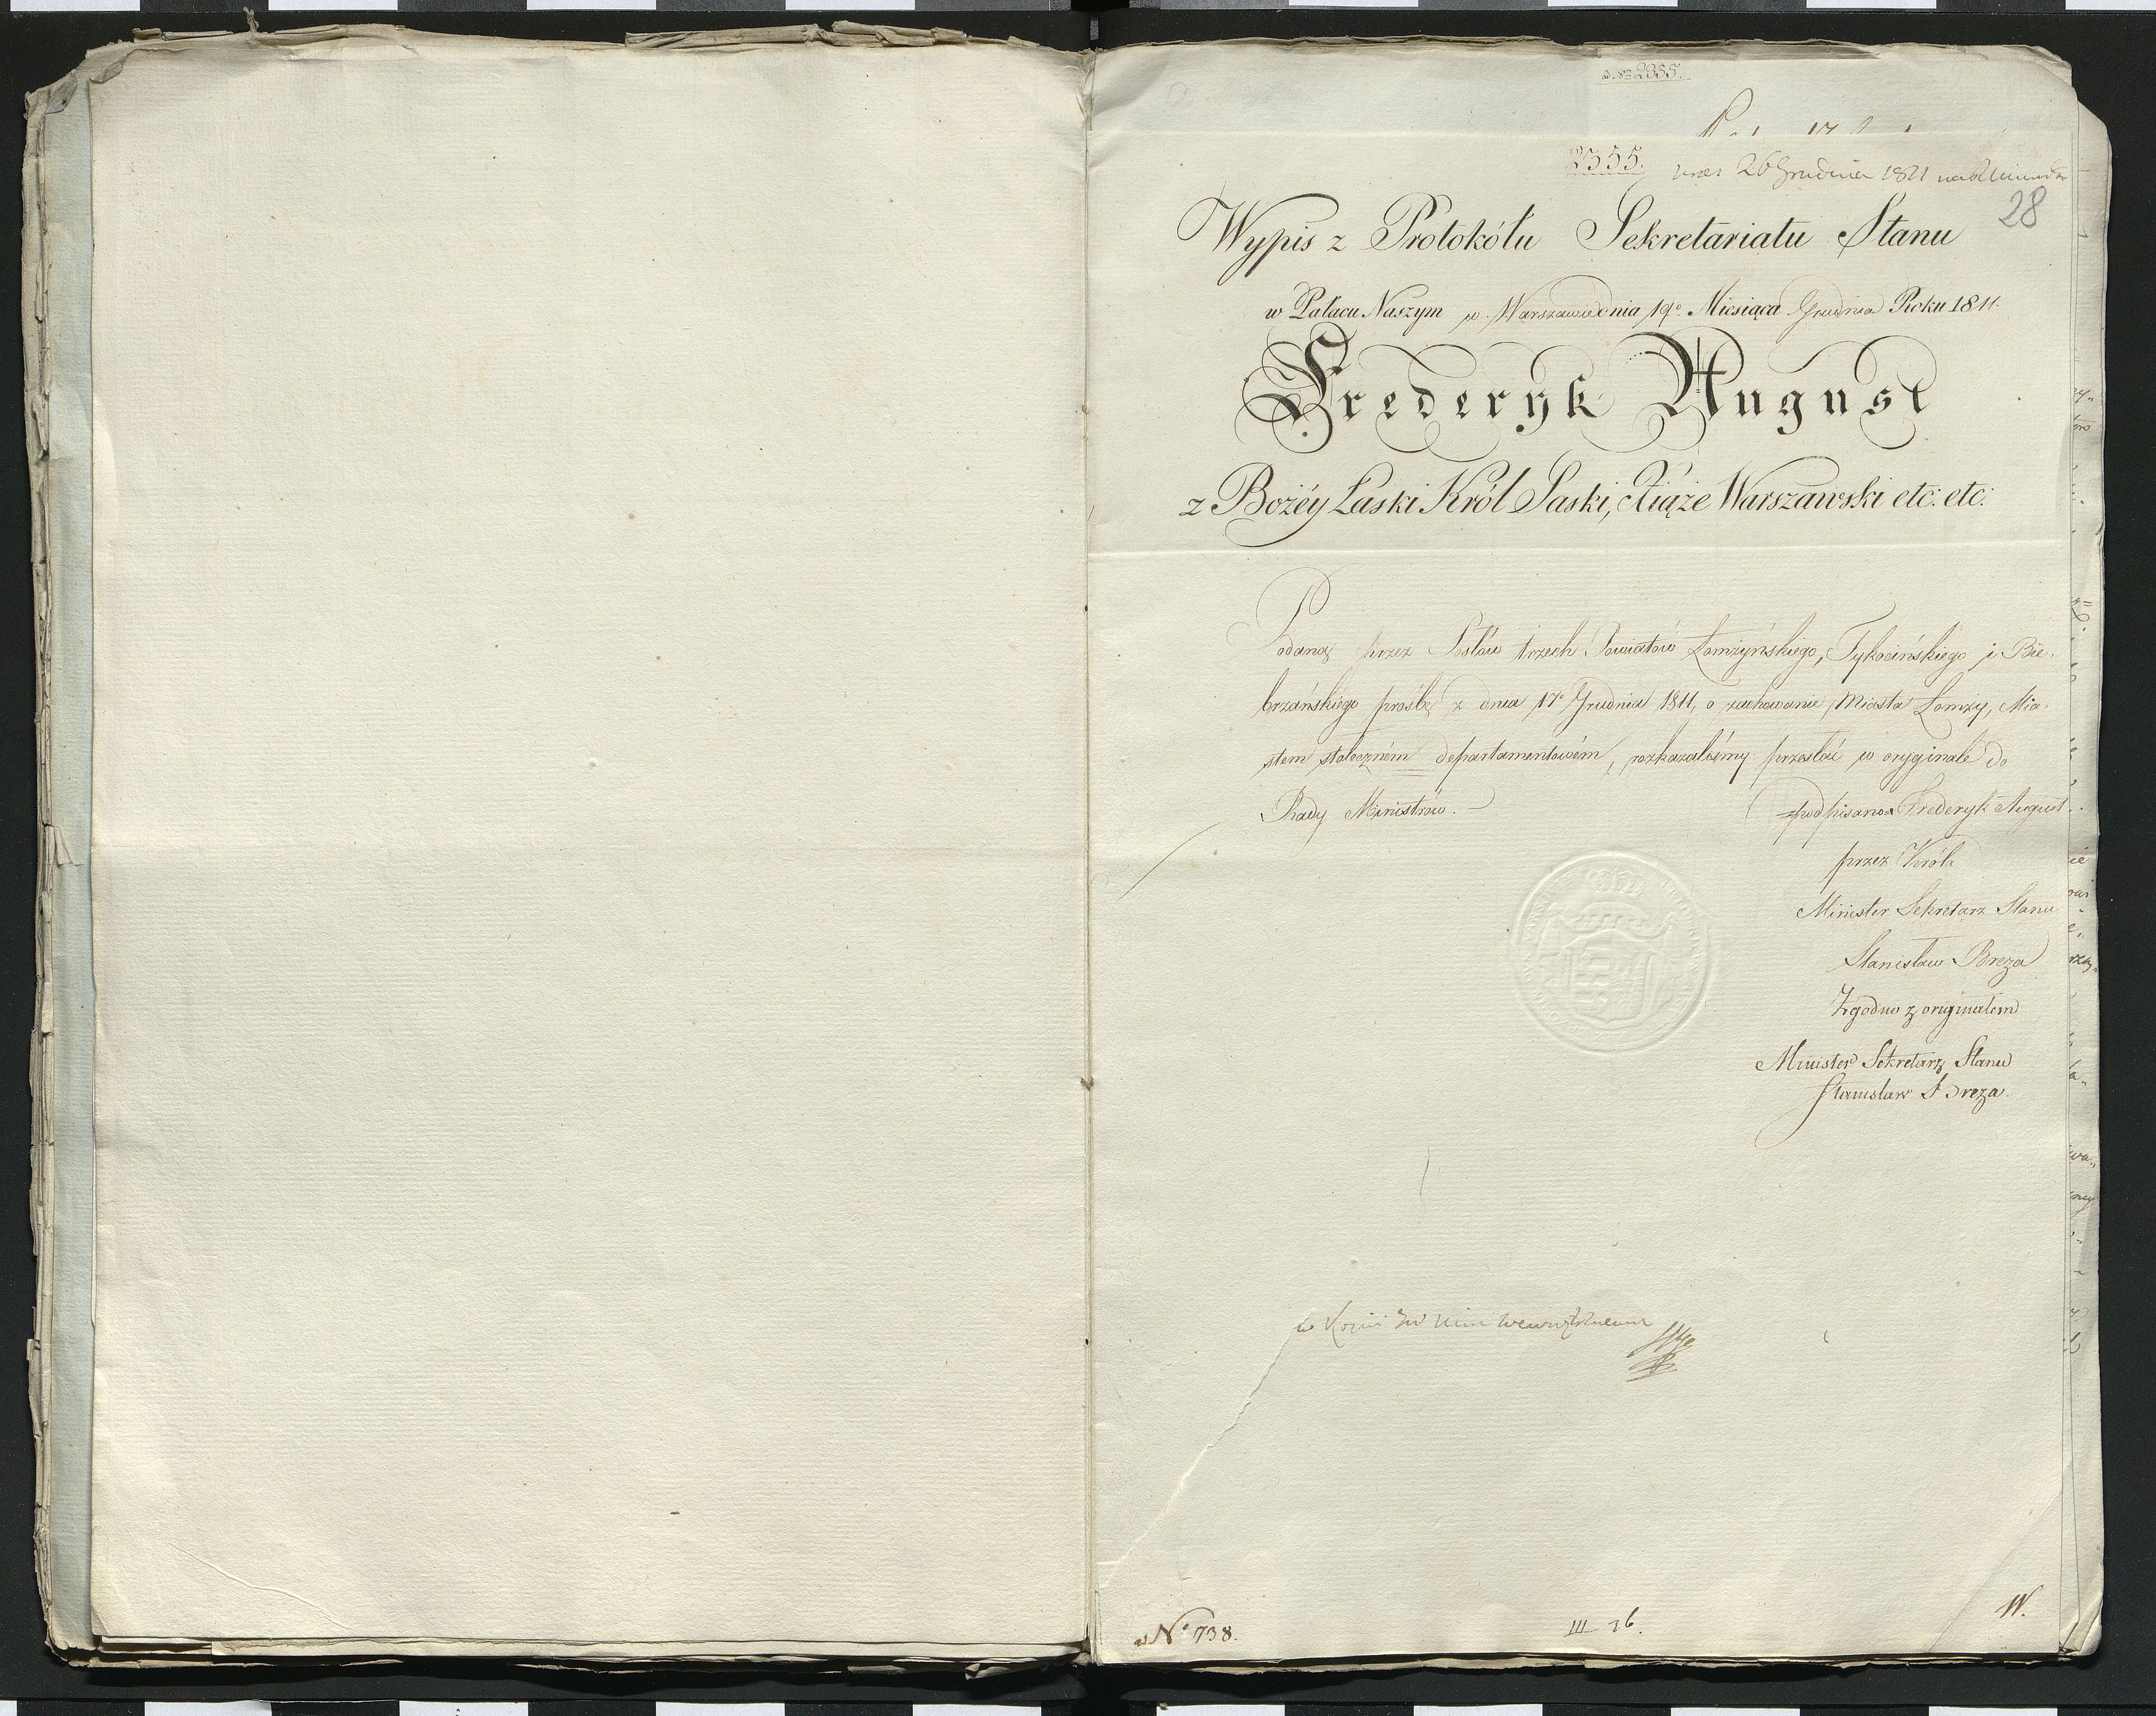 ad Nrm 2355.
2355.
28
26 Grudnia 1811
Wypis z Protokółu Sekretariatu Stanu
w Pałacu Naszym w Warszawie dnia 19o Miesiąca Grudnia Roku 1811.
Frederyk August
z Bożéy Łaski Król Saski, Xiąże Warszawski etc: etc:
Podaną przez Posłów trzech Powiatów Łomżyńskiego, Tykocińskiego i Bie-
brzańskiego prośbę z dnia 17o Grudnia 1811, o zachowanie Miasta Łomży, Mia-
stem stołeczném departamentowém, rozkazaliśmy przesłać w oryginale do
Rady Ministrów. —
(podpisano) Frederyk August.
przez Króla
Minister Sekretarz Stanu
Stanisław Breza
Zgodno z originałem
Minister Sekretarz Stanu
Stanisław Breza.
No 738.
III 36.
W.